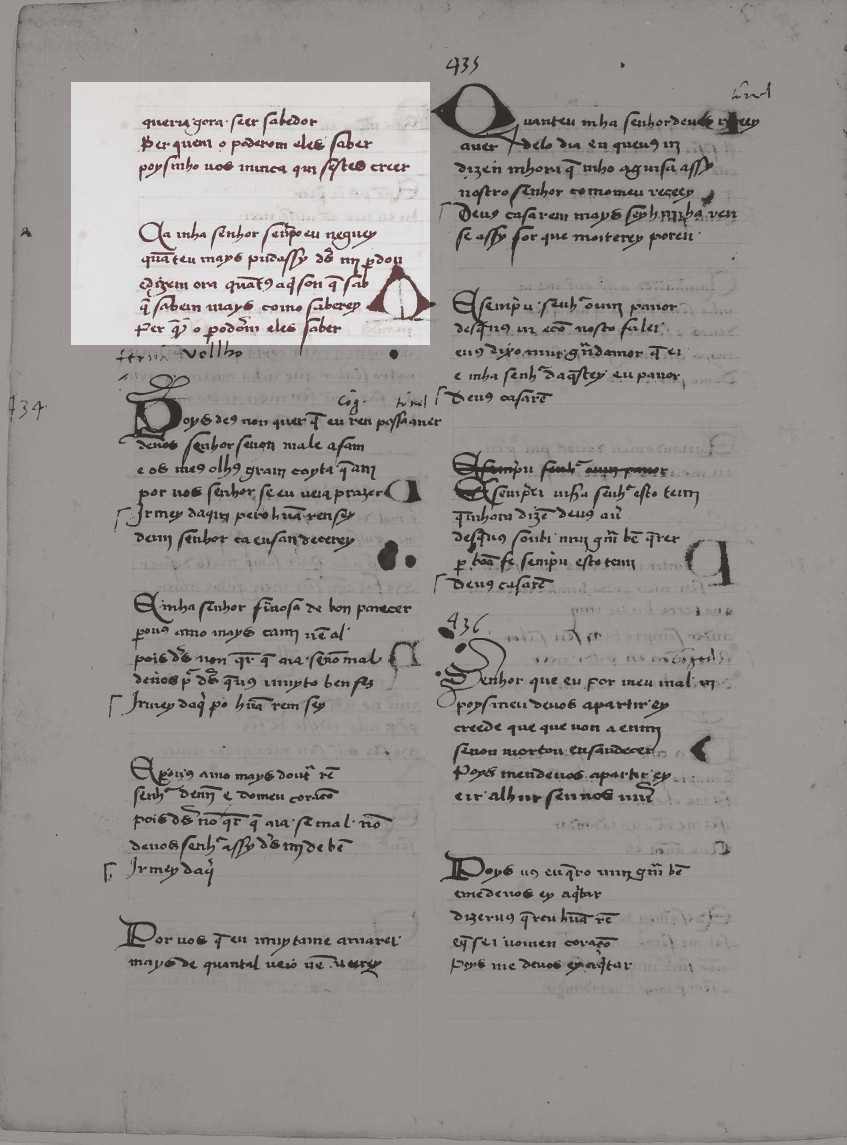 queria gora seer sabedor
Per quem o poderom eles saber
poys mho uos nunca qui sestes creer
Ca mha senhor senp̃ eu neguey
quãteu mays pud assy d's mi p̱don
e dizem ora quãt9 aq̃ son q̃ sab
q̃ sabem mays como saberey
Per q̃ o podõm eles saber
Vellho
434
Poys de9 non quer q̃ eu ren possa auer
deuos senhor senon male afam
e os me9 olh9 gram coyta q̃ am
por uos senhor se eu ueia prazer
Irmey daquẽ pero hũa ren sey
demj senhor ca ensandecerey
Ay mha senhor fremosa de bon parecer
pou9 amo mays cami nẽ al
pois d's non q̃r q̃ aia senõ mal
deuos p̃ d's q̃ u9 muyto ben fez
Irmey daq̃ po hũa rem sey
E poiu9 amo mays doutr̃ rẽ
senh̃ demj e domeu coraçõ
pois d's nõ q̃r q̃ aia se mal nõ
deuos senh̃ assy d's mj de bẽ
Irmey daq̃
Por uos q̃ eu muy tame amarei
mays de quantal ueio nẽ ueerey
435
Quanteu mha senhor deuos recey
auer delo dia en que u9 ui
dizen mhora q̃ mho aguisa assy
nostro senhor como meu recey
Deu9 casarem mays seyhmha ren
se assy for que morrerey poren
E semp̃u senh̃ ouui pauor
desq̃u9 ui ecõ nosto falei
eu9 dixo mui grãdamor q̃ ei
e mha senh̃ daq̃stey eu pauor
Deu9 casarẽ
E semp̃u senh̃ ouui pauor
E semprei mha senh̃ esto temj
q̃mhora dizẽ deu9 auj̃
desq̃u9 soubi muj grã bẽ q̃rer
p̱ bõa fe semp̃u esto temj
Deu9 casarẽ
436
Senhor que eu por meu mal ui
poys meu deuos apartir ey
creede que que non a em mj
senon mortou ensandecer
Poys mendeuos apartir ey
e ir alhur sen uos uiũ
Poys u9 eu q̃ro muj grã bẽ
eme deuos ey aq̃tar
dizeru9 q̃reu hũa rẽ
eq̃ sei nomen coraçõ
Poys me deuos ey aq̃tar